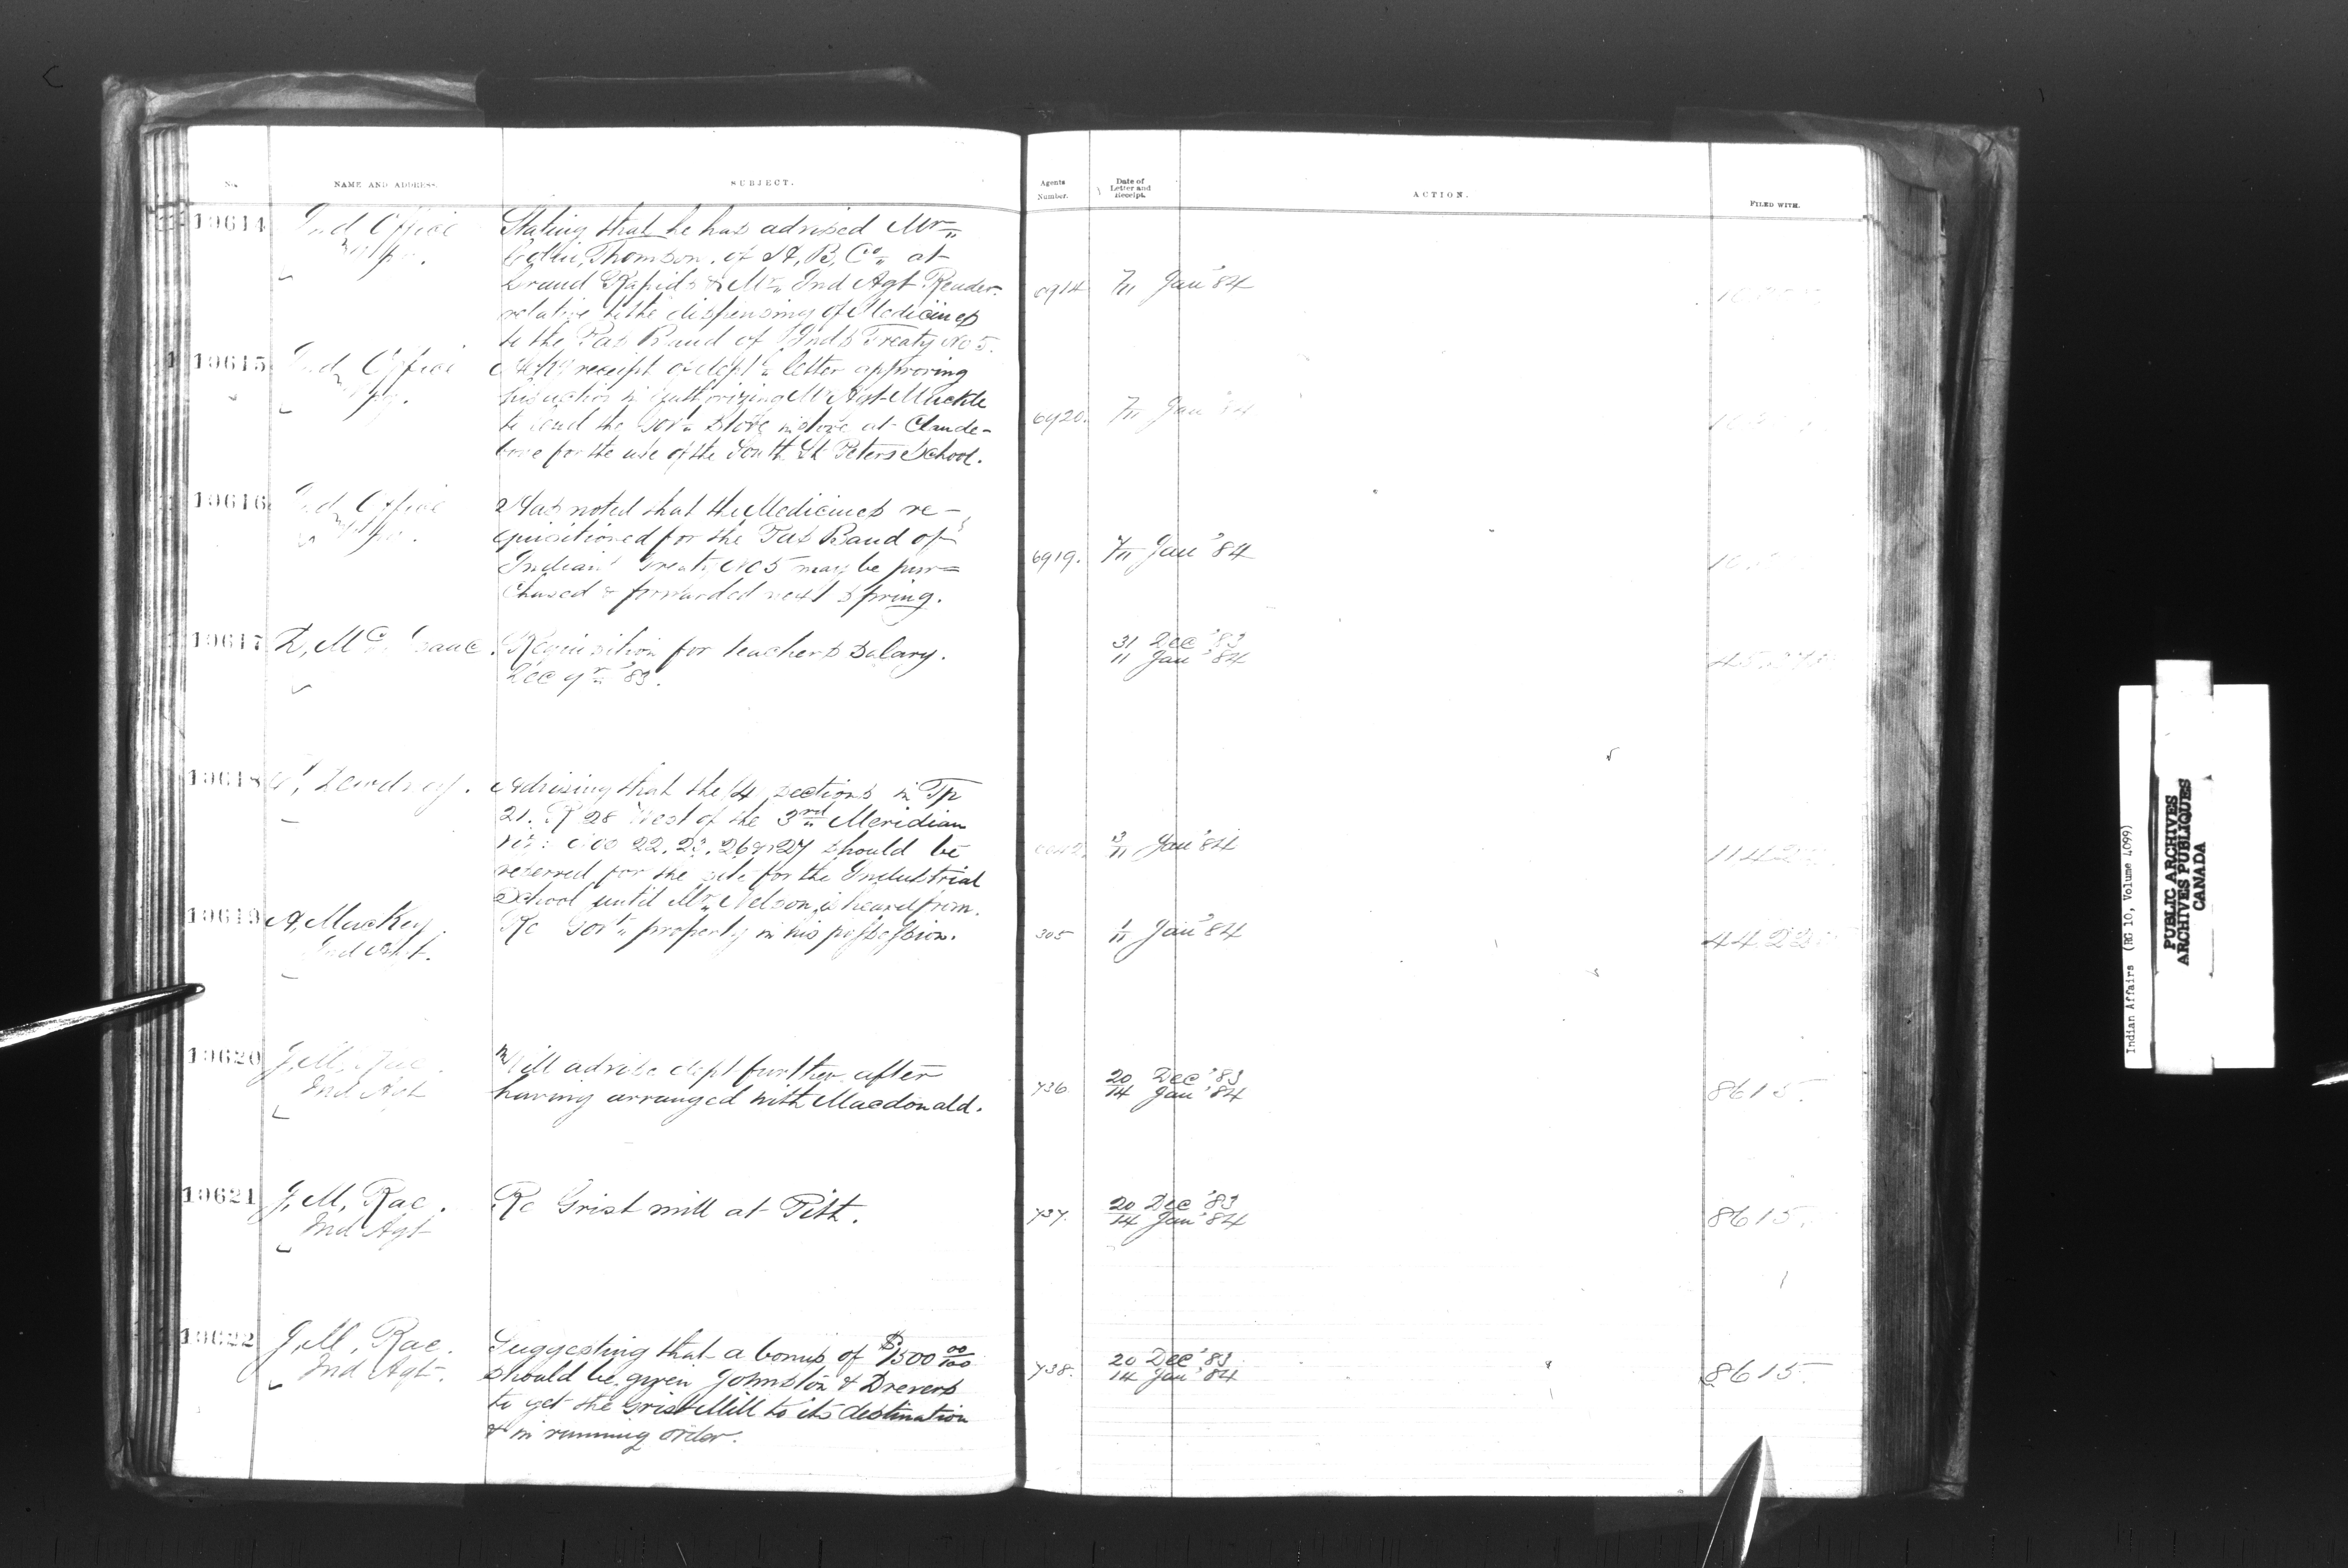 No. NAME AND ADDRESS. SUBJECT. Agents Number. Date of Letter and Receipt. ACTION. FILED WITH.
19614 Ind Office Stating that he has advised Mr
Thomson, of H, B, Co at
Grand Rapids & Mr Ind Agt Reader 6914 7/11 Jan '84
relative to the dispensing of Medicines
to the Pas Band of Inds Treaty No 5.
19615 Ind Office receipt of dept letter approving
his action in authorizing Mr Agt Muckle
to lend the Gov't Stove in store at Clande- 6920. 7/11 Jan '84
boye for the use of the South St Peters School.
19616 Ind Office Has noted that the Medicines re-
quisitioned for the Pas Band of
Indians Treaty No 5 may be pur= 6919. 7/11 Jan '84
chased & forwarded next spring.
19617 Requisition for teachers salary. 31 Dec '83
Dec qr '83. 11 Jan '84
19618 Advising that the 4 sections in Tp
21. R 28 West of the 3rd Meridian
viz: Nos 22, 23, 26 & 27 should be 3/11 Jan '84
reserved for the site for the Industrial
School until Mr Nelson is heard from.
19619 A, MacKay Re Gov't property in his possession. 305 1/11 Jan '84
Ind Agt.
19620 J, M, Rae Will advise dept further after 20 Dec '83
Ind Agt having arranged with Macdonald. 736 14 Jan '84 8615.
19621 J, M, Rae. Re Grist mill at Pitt. 737. 20 Dec '83 8615.
Ind Agt 14 Jan '84
19622 J, M, Rae. Suggesting that a bonus of $1500 00/100
Ind Agt. should be given Johnston & Drevers 738. 20 Dec '83 8615.
14 Jan '84
to get the Grist Mill to its destination
& in running order.
Indian Affairs (RG 10, Volume 4099)
PUBLIC ARCHIVES
ARCHIVES PUBLIQUES
CANADA